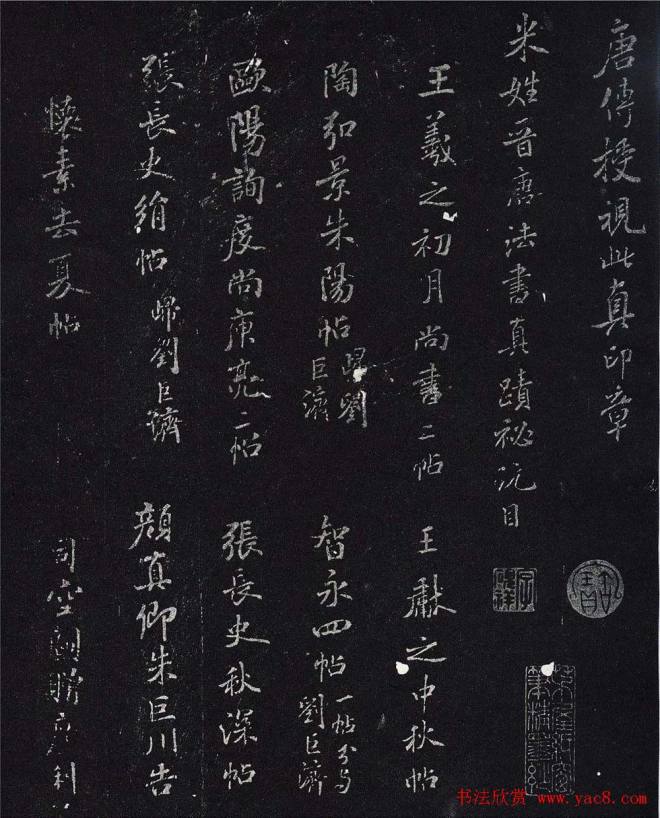 唐傳授視此真印章
米姓晉唐法書真蹟祕玩目
王羲之初月尚書二帖 王獻之中秋帖
陶弘景朱陽帖 歸劉巨濟 智永四帖 一帖分与劉巨濟
歐陽詢度尚庾亮二帖 張長史秋深帖
張長史絹帖 歸劉巨濟 顏真卿朱巨川告
懷素去夏帖 司空圖贈
书法欣赏 www.yac8.com